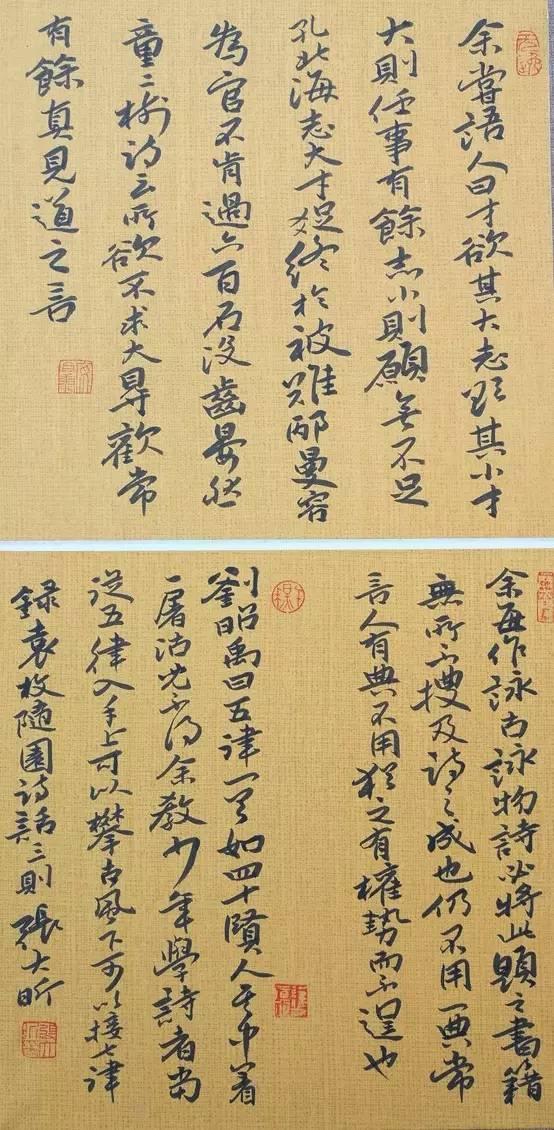 余嘗語人曰才欲其大志欲其小才
大則任事有餘志小則願無不足
孔北海志大才疎終於被難邴曼容
為官不肯過六百石沒齒晏然
童二樹詩云所欲不求大得歡常
有餘真見道之言
余每作詠古詠物詩必將此題之書籍
無所不搜及詩之成也仍不用一典常
言人有典不用猶之有權勢而不逞也
劉昭禹曰五律一首如四十賢人其中着
一屠沽兒不得余教少年學詩者當
從五律入手上可以攀古風下可以接七律
錄袁枚隨園詩話三則 張大昕